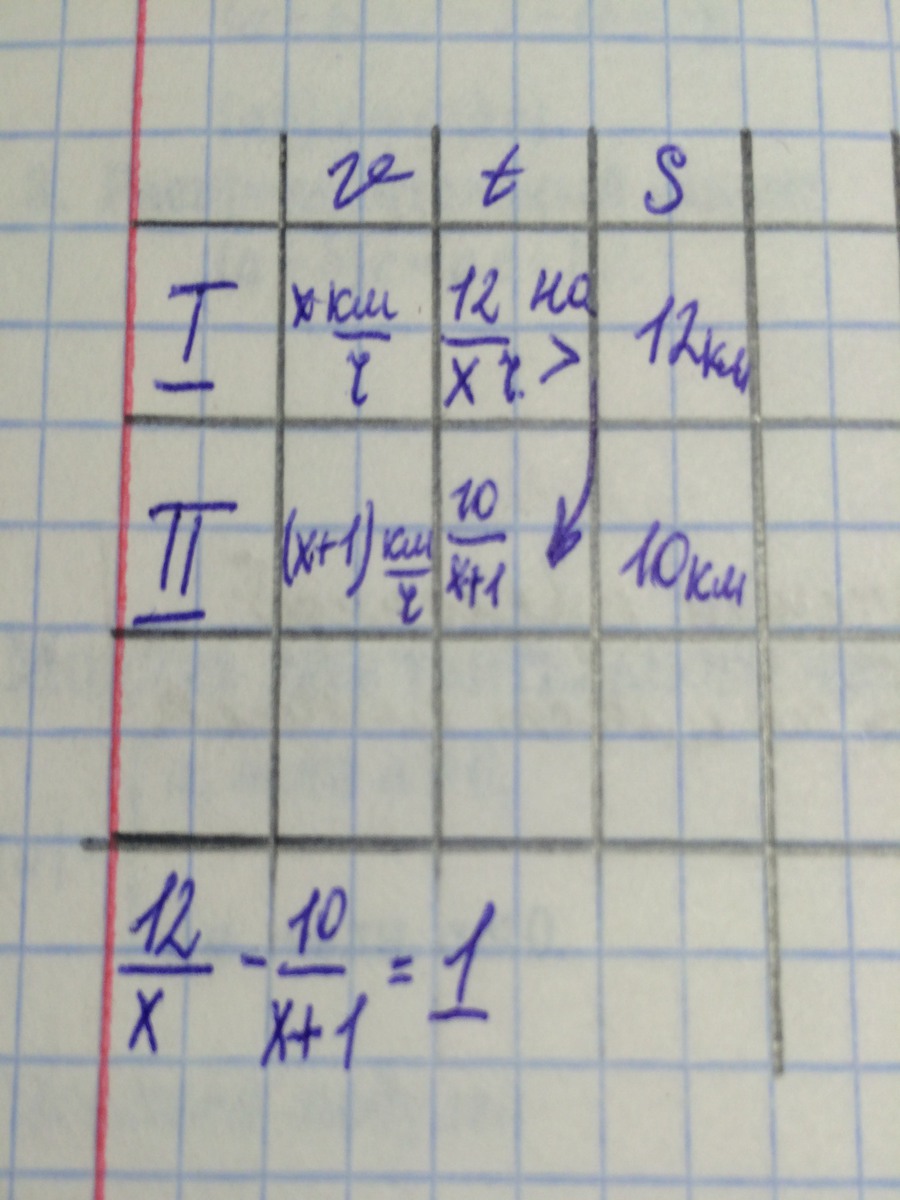 v t S
I x км/ч 12/x ч. на > 12 км
II (x+1) км/ч 10/x+1 10 км
12/x - 10/x+1 = 1